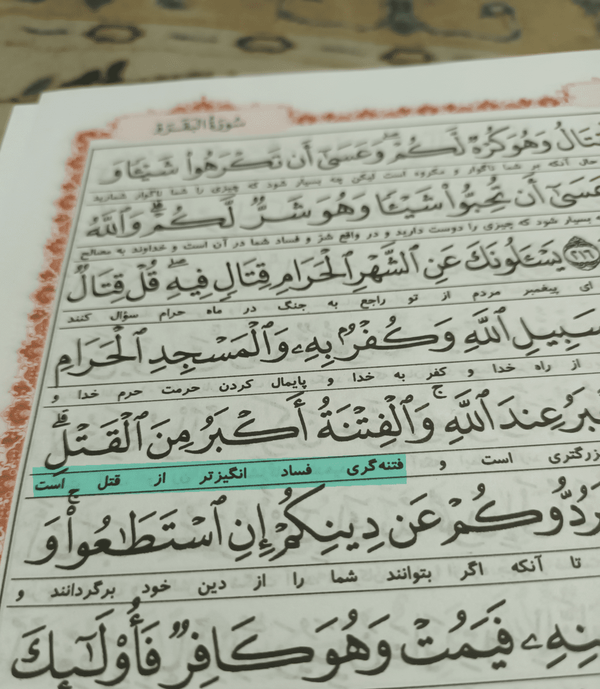 سُورَةُ الْبَقَرَةِ
وَهُوَ كُرْهٌ لَّكُمْ ۖ وَعَسَىٰٓ أَن تَكْرَهُوا۟ شَيْـًٔا وَ
حال آنکه بر شما ناگوار و مکروه است لیکن چه بسیار شود که چیزی را شما ناگوار شمارید
أَن تُحِبُّوا۟ شَيْـًٔا وَهُوَ شَرٌّ لَّكُمْ ۗ وَٱللَّهُ
بسیار شود که چیزی را دوست دارید و در واقع شرّ و فساد شما در آن است و خداوند به مصالح
﴿٢١٦﴾ يَسْـَٔلُونَكَ عَنِ ٱلشَّهْرِ ٱلْحَرَامِ قِتَالٍ فِيهِ ۖ قُلْ قِتَالٌ
ای پیغمبر مردم از تو راجع به جنگ در ماه حرام سؤال کنند
سَبِيلِ ٱللَّهِ وَكُفْرٌۢ بِهِۦ وَٱلْمَسْجِدِ ٱلْحَرَامِ
از راه خدا و کفر به خدا و پایمال کردن حرمت حرم خدا و
عِندَ ٱللَّهِ ۚ وَٱلْفِتْنَةُ أَكْبَرُ مِنَ ٱلْقَتْلِ ۗ
است و فتنه‌گری فساد انگیزتر از قتل است
عَن دِينِكُمْ إِنِ ٱسْتَطَـٰعُوا۟ ۚ وَ
تا آنکه اگر بتوانند شما را از دین خود برگردانند و
فَيَمُتْ وَهُوَ كَافِرٌ فَأُو۟لَـٰٓئِكَ